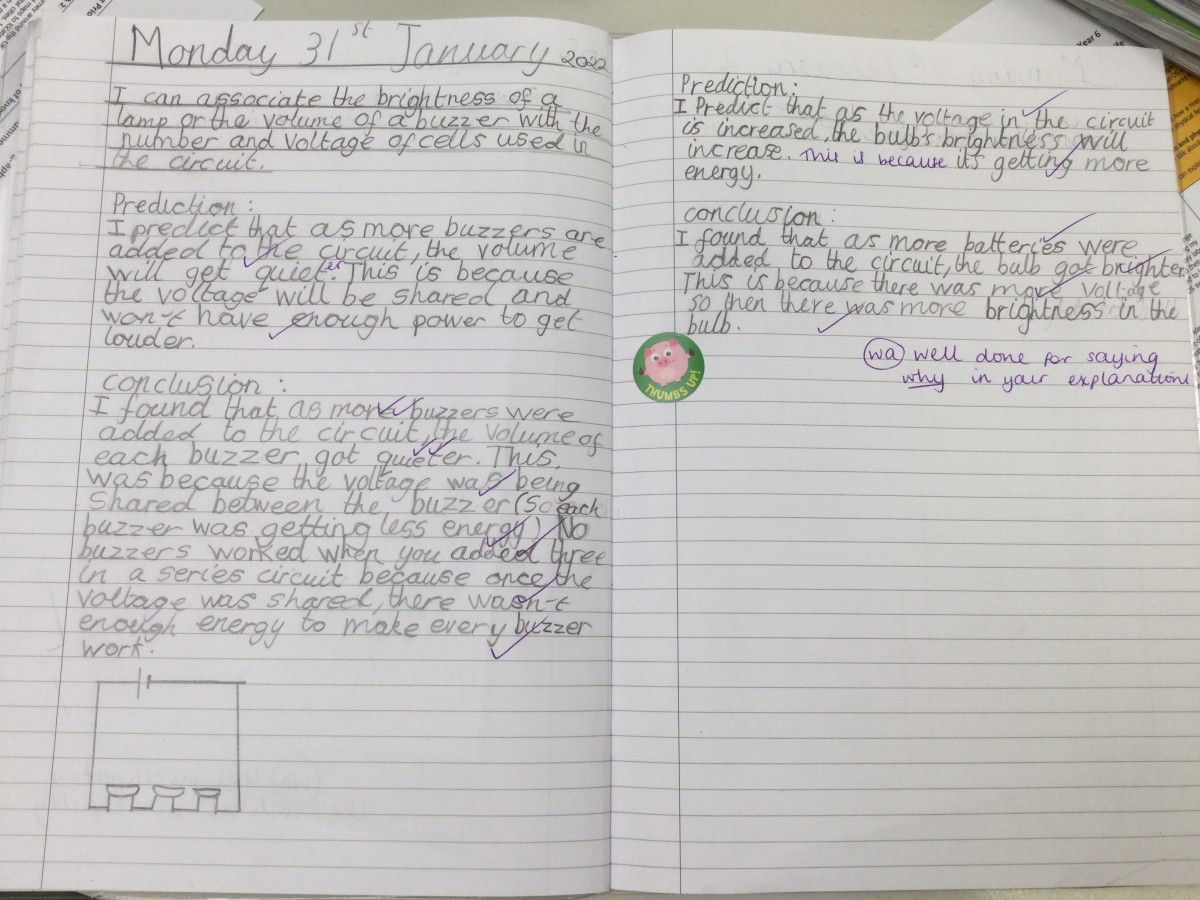 Monday 31st January 2022
I can associate the brightness of a
lamp or the volume of a buzzer with the
number and voltage of cells used in
the circuit.
Prediction:
I predict that as more buzzers are
added to the circuit, the volume
will get quieter. This is because
the voltage will be shared and
won't have enough power to get
louder.
Conclusion:
I found that as more buzzers were
added to the circuit, the volume of
each buzzer got quieter. This
was because the voltage was being
shared between the buzzer (So each
buzzer was getting less energy) No
buzzers worked when you added three
in a series circuit because once the
voltage was shared, there wasn't
enough energy to make every buzzer
work.
Prediction:
I Predict that as the voltage in the circuit
is increased, the bulb's brightness will
increase. This is because it's getting more
energy.
conclusion:
I found that as more batteries were
added to the circuit, the bulb got brighter
This is because there was more voltage
so then there was more brightness in the
bulb.
THUMBS UP!
wa well done for saying
why in your explanation
Year 6